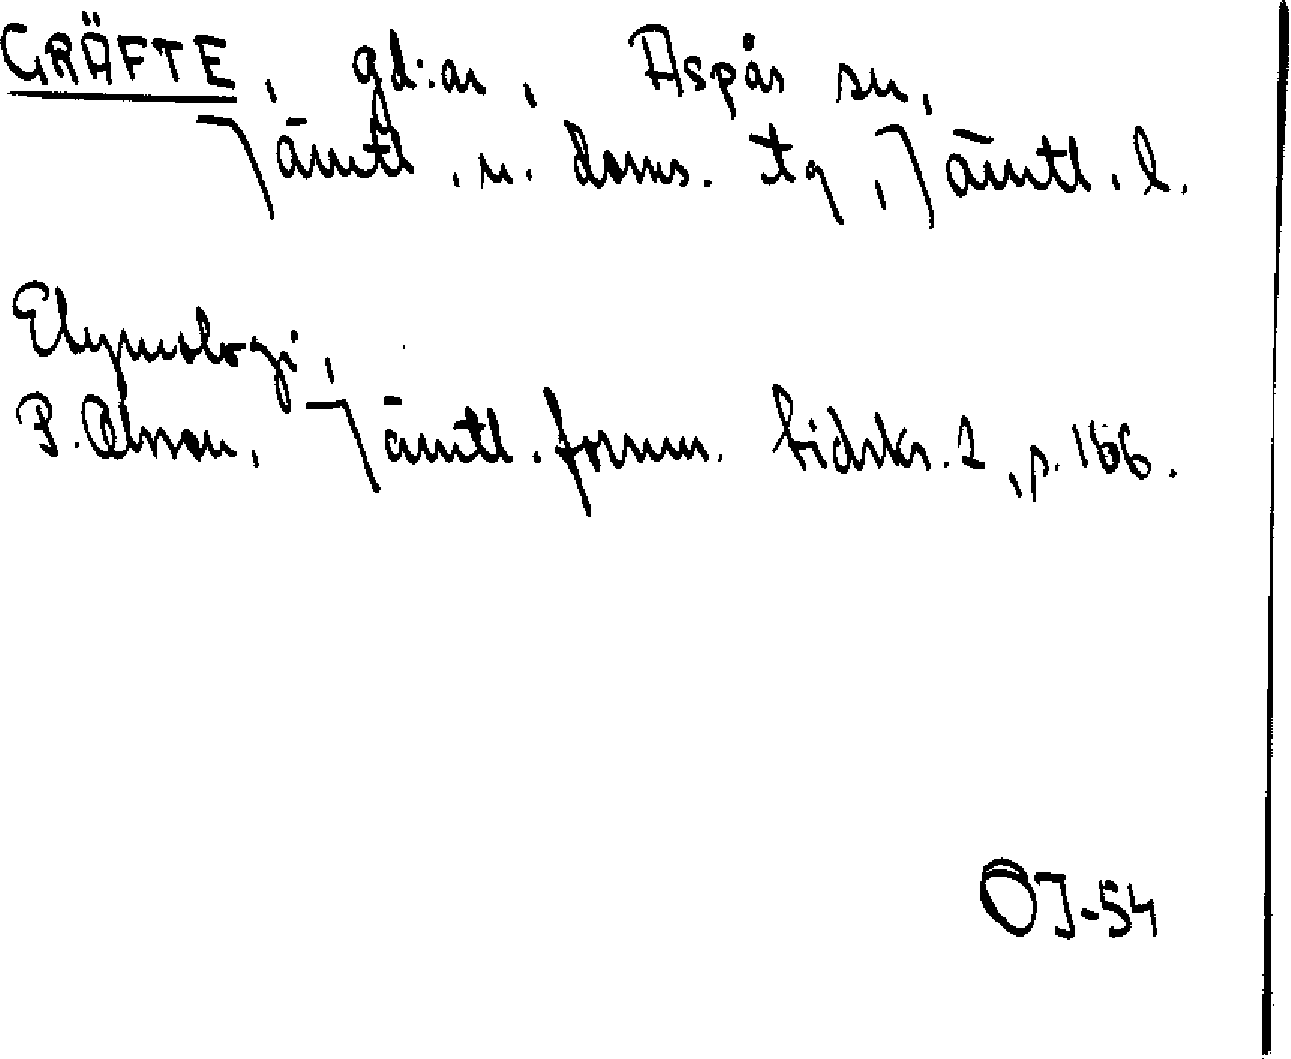 GRÄFTE, gd:ar, Aspås sn,
Jämtl. n. doms. tg, Jämtl. l.
Etymologi,
P. Olsson, Jämtl. fornm. tidskr. 2, s. 166.
OJ-54